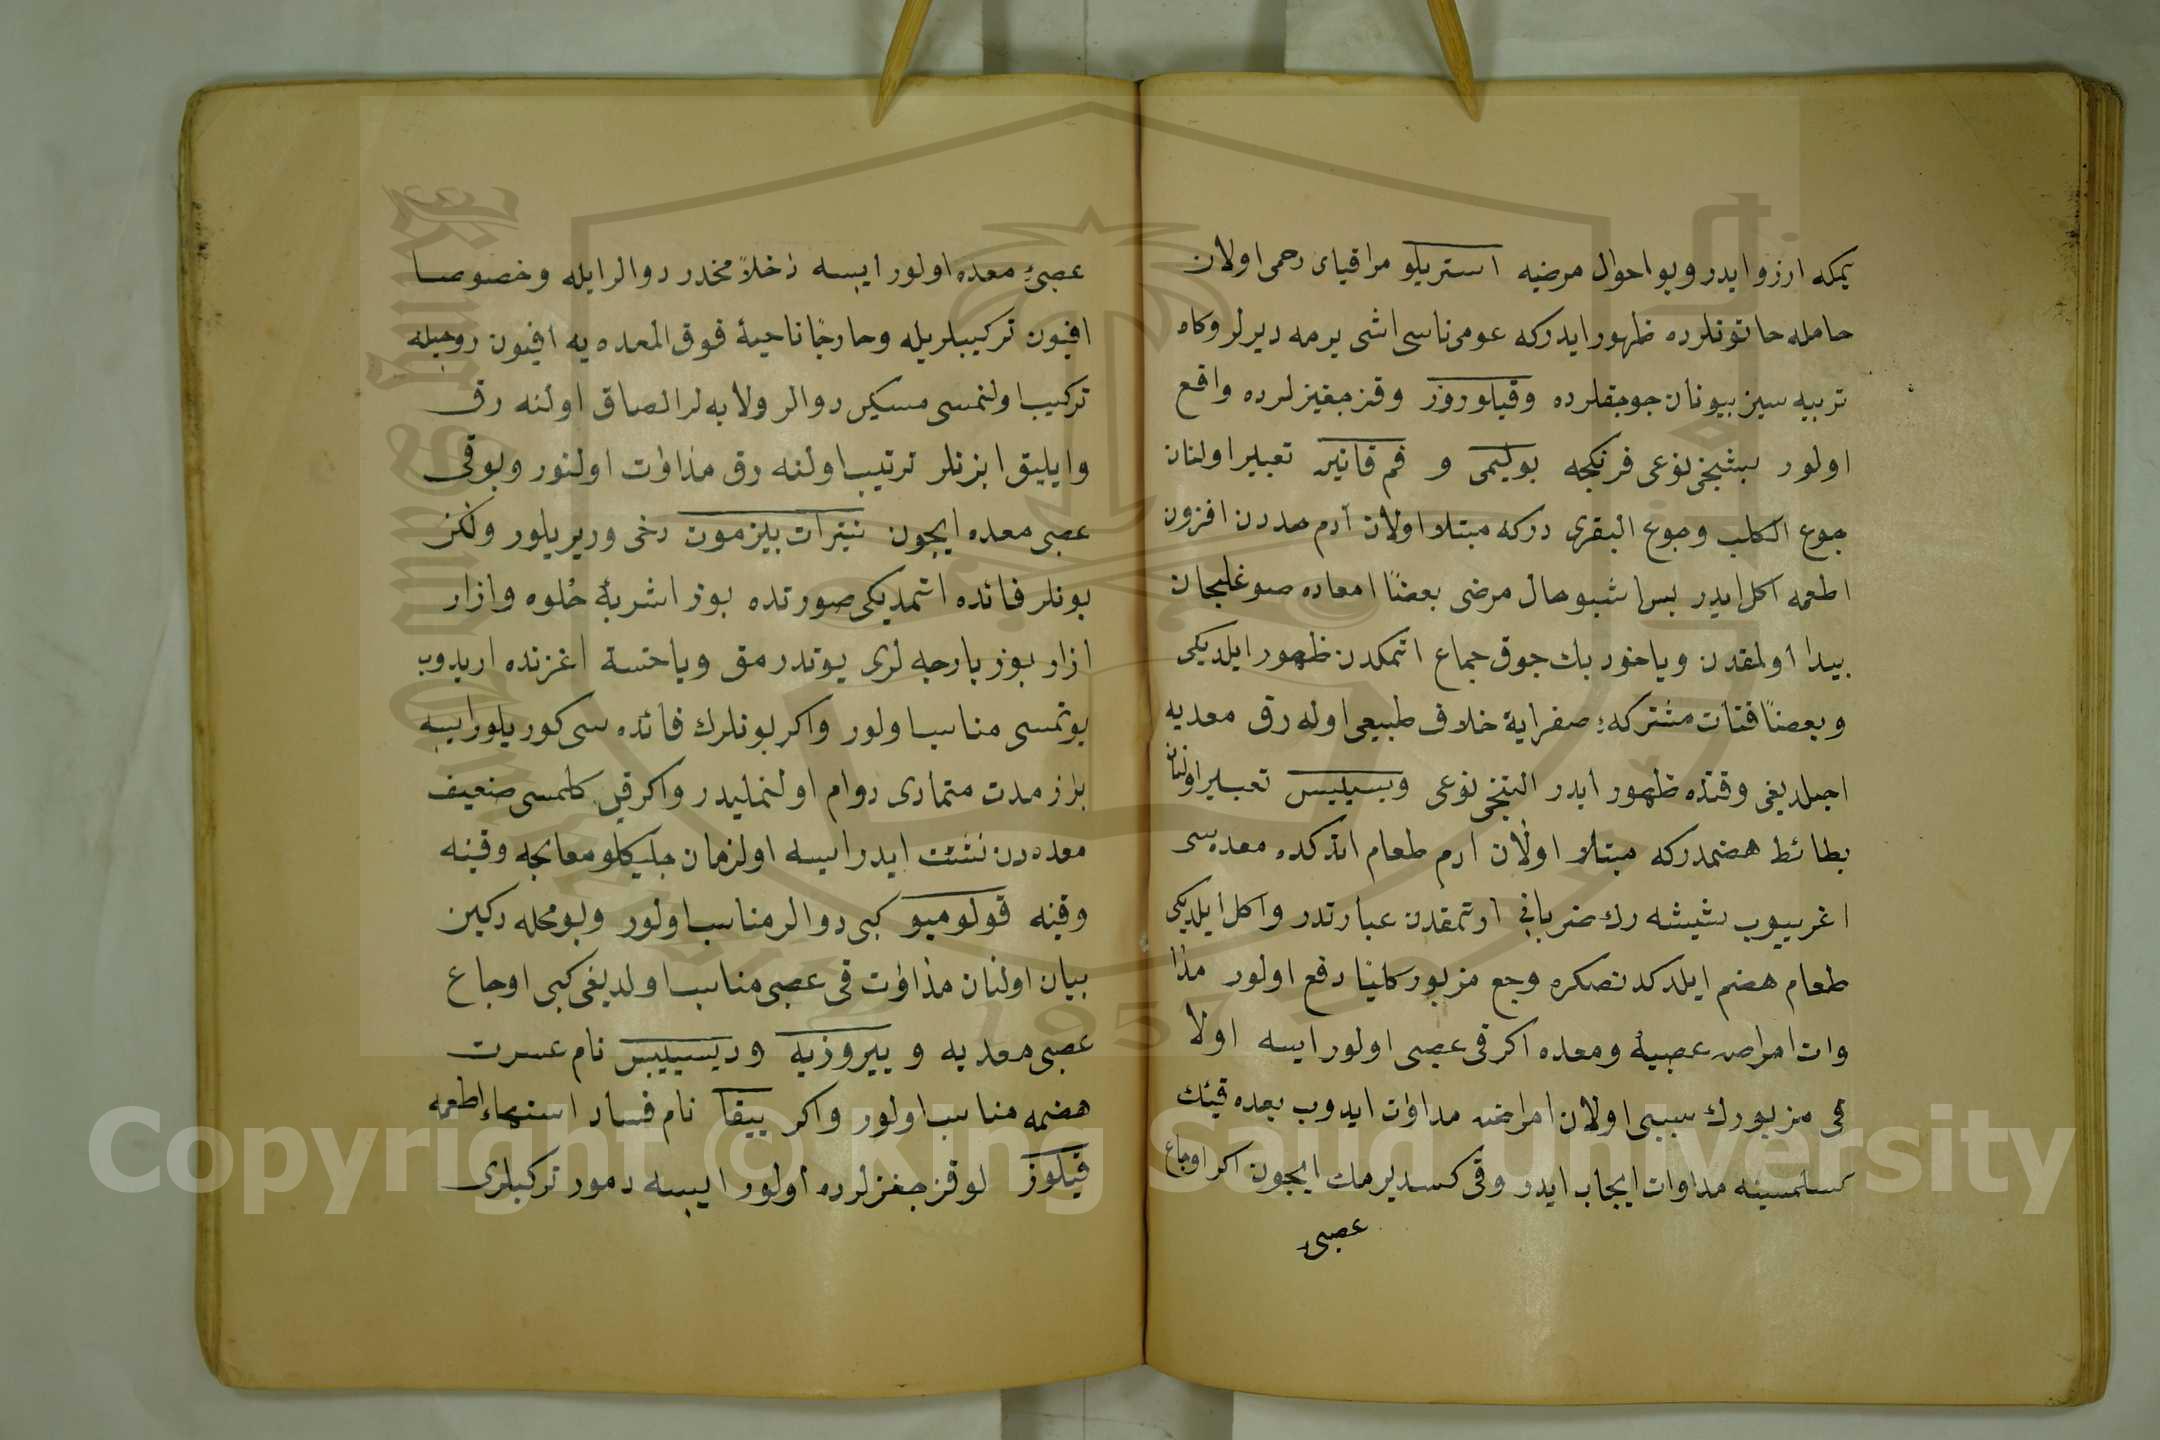 يمكه ارزو ايدر وبو احوال مرضيه استريلو مراقياى رحمى اولان
حامله خاتونلرده ظهور ايدركه عومى ناسى اشى يرمه ديرلر وكاه
تربيه سيز بيونان جوجقلرده وقيلوروز وقزجقيزلرده واقع
اولور بشنجى نوعى فرنكجه بوليمى و فم قانين تعبير اولنان
جوع الكلب وجوع البقرى دركه مبتلا اولان آدم حددن افزون
اطعمه اكل ايدر بس اشبو حال مرضى بعضًا امعاده صوغليجان
بيدا اولمقدن وياخود بك جوق جماع اتمكدن ظهور ايلديكى
وبعضًا قنات مشتركهء صفرايهٔ خلاف طبيعى اوله رق معديه
اجلديغى وقتده ظهور ايدر التنجى نوعى ويسپليس تعبير اولنان
بطائط هضمدركه مبتلا اولان ادم طعام اتدكده معديسى
اغرييوب شيشه رك ضربانى ارتمقدن عبارتدر واكل ايلديكى
طعام هضم ايلدكدنصكره وجع مزبور كلينًا دفع اولور مدا
وات امراض عصبيهٔ ومعده اكر قى عصبى اولور ايسه اولا
قى مزبورك سببى اولان امراضه مداوات ايدوب بعده قيئك
كسلمسينه مداوات ايجاب ايدر وقى كسديرمك ايجون اكر اوجاع
عصبىء
عصبىء معده اولور ايسه دخلاً مخدر دوالر ايله وخصوصا
افيون تركيبلريله وخارجًا ناحيهٔ فوق المعده يه افيون روحيله
تركيب اولنمسى مسكن دوالر ولابه لر الصاق اولنه رق
وايليق ابزنلر ترتيب اولنه رق مداوات اولنور وبو قى
عصبى معده ايجون نيترات بيزموت دخى وريريلور ولكن
بونلر فائده اتمديكى صورتده بوز اشربهٔ حُلوه وازار
ازار بوز بارجه لرى يوتدرمق وياخسته اغزنده اريدوب
يوتمسى مناسب اولور واكر بونلرك فائده سى كوريلور ايسه
براز مدت متمادى دوام اولنمليدر واكر قى كلمسى ضعيف
معده دن نشئت ايدر ايسه اولزمان جليكلو معالجه وقينه
وقينه قولومبو كبى دوالر مناسب اولور وبو محله دكين
بيان اولنان مداوات قى عصبى مناسب اولديغى كبى اوجاع
عصبى معديه و پيروزيه وديسپپس نام عسرت
هضمه مناسب اولور واكر پيقا نام فساد اشتهاء اطعمه
قيلوز لو قزجغزلرده اولور ايسه دمور تركيبلرى
Copyright © King Saud University
1957